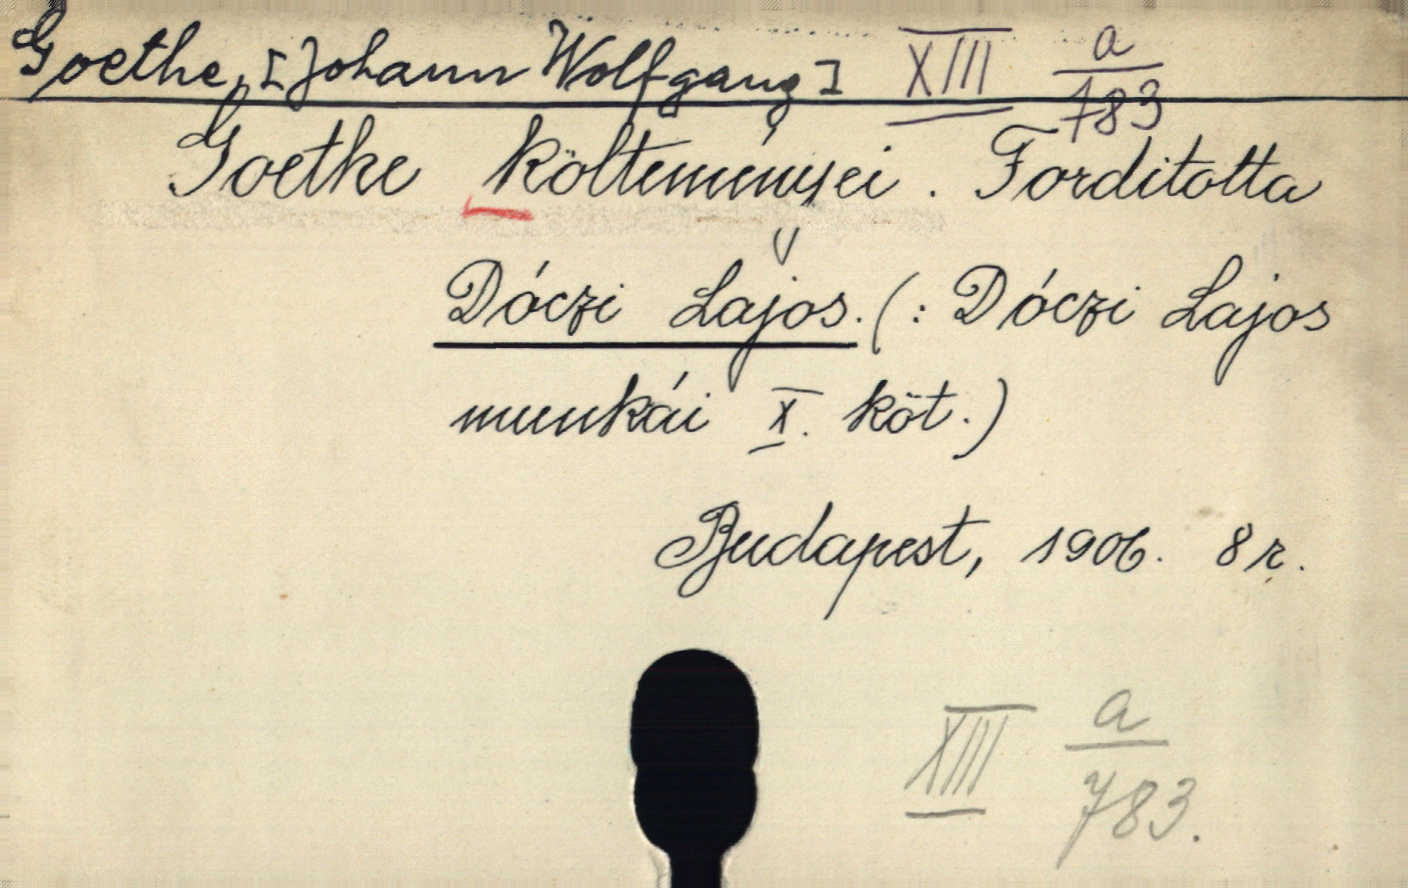 Goethe, [Johann Wolfgang] XIII a/783
Goethe költeményei. Forditotta
Dóczi Lajos. (: Dóczi Lajos
munkái X. köt.)
Budapest, 1906. 8r.
XIII a/783.